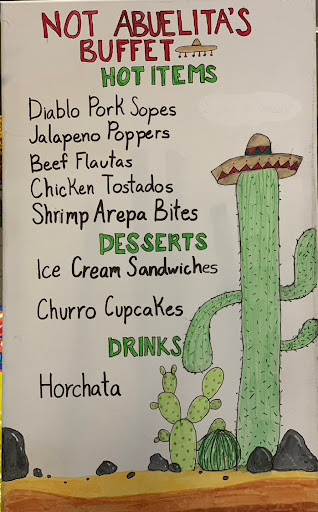 NOT ABUELITA'S
BUFFET
HOT ITEMS
Diablo Pork Sopes
Jalapeno Poppers
Beef Flautas
Chicken Tostados
Shrimp Arepa Bites
DESSERTS
Ice Cream Sandwiches
Churro Cupcakes
DRINKS
Horchata